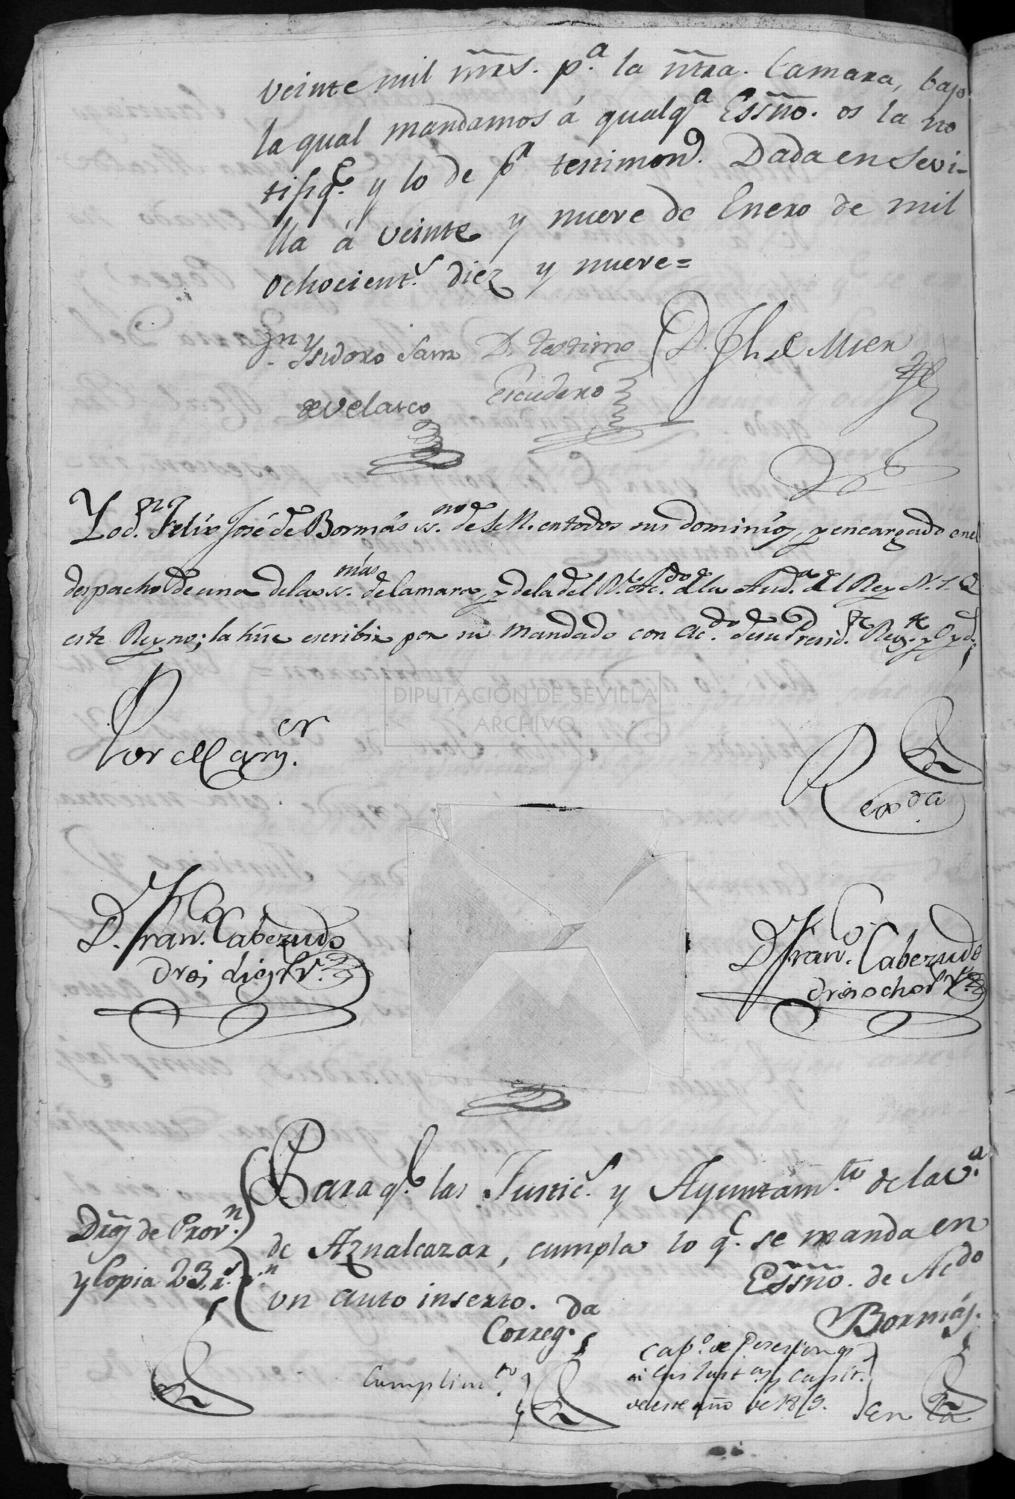 veinte mil mrs. p.ª la ntra. Camara, bajo
la qual mandamos á qualqª Essño. os la no
tifiqe. y lo de pr. testimonº. Dada en Sevi-
lla á veinte y nueve de Enero de mil
ochocients. diez y nueve=
Dn. Ysidoro Sanz
de Velasco
Escudero
Yo dn. Felix José de Bormás ss.no de S.M. en todos sus dominios, y encargado en el
despacho de una de las ss.nías de Camara, y de la del Rl. Acdo. de la Auda. del Rey N.S. de
este Reyno; la hise escribir por su mandado con Acdo. de su Presid.te Reg.te y Oyd.s
Por el Cangº.er
Regda
D. Franco. Cabezudo
dros diez rrs.vn
D. Franco. Cabezudo
dros ocho rrs.vn
Dros de Prov.n
y Copia 23 rs.vn
Para qe. las Justics. y Ayuntam.to de la v.ª
de Aznalcazar, cumpla lo qe. se manda en
un auto inserto.
Essño. de Acdo
Bormás.
Correg.da
Cumplim.to
de este año de 1819.
DIPUTACIÓN DE SEVILLA
ARCHIVO